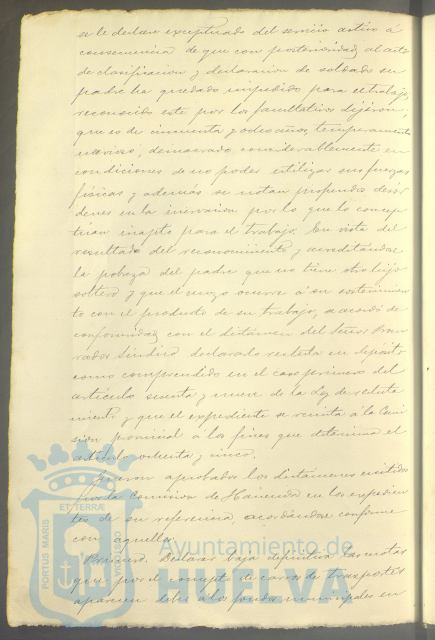 se le declare exceptuado del servicio activo á
consecuencia de que con posterioridad al acto
de clasificacion y declaracion de soldado su
padre ha quedado impedido para el trabajo,
reconocido este por los facultativos dijeron,
que es de cincuenta y ocho años, temperamento
nervioso, demacrado considerablemente en
condiciones de no poder utilizar sus fuerzas
físicas y además se notan profundos desór
denes en la inervacion por lo que lo concep
túan inapto para el trabajo. En vista del
resultado del reconocimiento y acreditandose
la pobreza del padre que no tiene otro hijo
soltero y que el mozo ocurre á su sostenimien
to con el producto de su trabajo, se acordó de
conformidad con el dictámen del Señor
Síndico declararlo recluta en depósito
como comprendido en el caso primero del
artículo sesenta y nueve de la Ley de recluta
miento y que el expediente se remita á la Comi
sion provincial á los fines que determina el
artículo ochenta y cinco.
Fueron aprobados los dictámenes emitidos
por la Comision de Hacienda en los expedien
tes de su referencia, acordándose conforme
con aquellos.
Primero. Declarar baja definitiva las cuotas
que por el concepto de carros de trasportes
aparecen debe á los fondos municipales en
ET TERRÆ
PORTUS MARIS
CUSTODIO
Ayuntamiento de
HUELVA